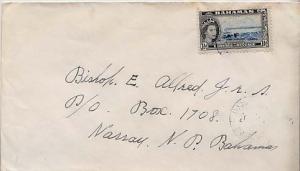 BAHAMAS
Bishop E. Alfred J. r. s
P/O Box 1708.
Narray N. P. Bahamas